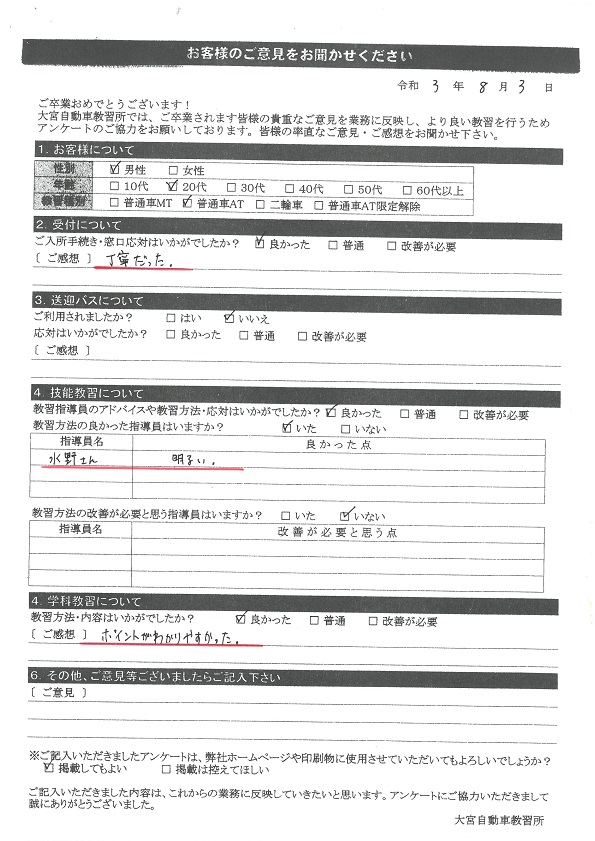 お客様のご意見をお聞かせください
令和 3 年 8 月 3 日
ご卒業おめでとうございます！
大宮自動車教習所では、ご卒業されます皆様の貴重なご意見を業務に反映し、より良い教習を行うため
アンケートのご協力をお願いしております。皆様の率直なご意見・ご感想をお聞かせ下さい。
1. お客様について
性別 ☑男性 □女性
年齢 □10代 ☑20代 □30代 □40代 □50代 □60代以上
教習種別 □普通車MT ☑普通車AT □二輪車 □普通車AT限定解除
2. 受付について
ご入所手続き・窓口応対はいかがでしたか？ ☑良かった □普通 □改善が必要
〔 ご感想 〕 丁寧だった。
3. 送迎バスについて
ご利用されましたか？ □はい ☑いいえ
応対はいかがでしたか？ □良かった □普通 □改善が必要
〔 ご感想 〕
4. 技能教習について
教習指導員のアドバイスや教習方法・応対はいかがでしたか？ ☑良かった □普通 □改善が必要
教習方法の良かった指導員はいますか？ ☑いた □いない
指導員名 良かった点
水野さん 明るい。
教習方法の改善が必要と思う指導員はいますか？ □いた ☑いない
指導員名 改善が必要と思う点
4. 学科教習について
教習方法・内容はいかがでしたか？ ☑良かった □普通 □改善が必要
〔 ご感想 〕 ポイントがわかりやすかった。
6. その他、ご意見等ございましたらご記入下さい
〔 ご意見 〕
※ご記入いただきましたアンケートは、弊社ホームページや印刷物に使用させていただいてもよろしいでしょうか？
☑掲載してもよい □掲載は控えてほしい
ご記入いただきました内容は、これからの業務に反映していきたいと思います。アンケートにご協力いただきまして
誠にありがとうございました。
大宮自動車教習所